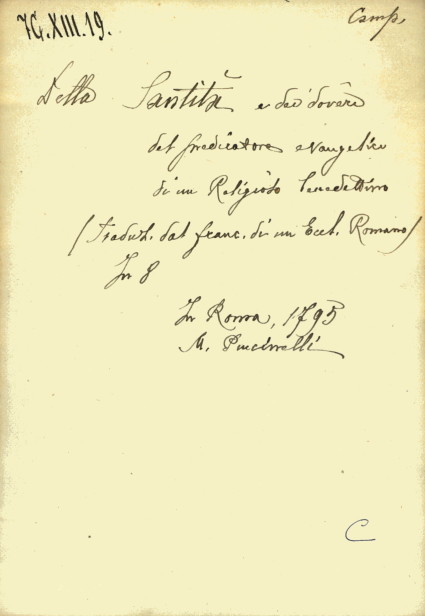 7G.XIII.19.
Camp.
Della Santità e dei doveri
del predicatore evangelico
di un Religioso benedettino
(Traduz. dal franc. di un Eccl. Romano)
In 8
In Roma, 1795
M. Puccinelli
C